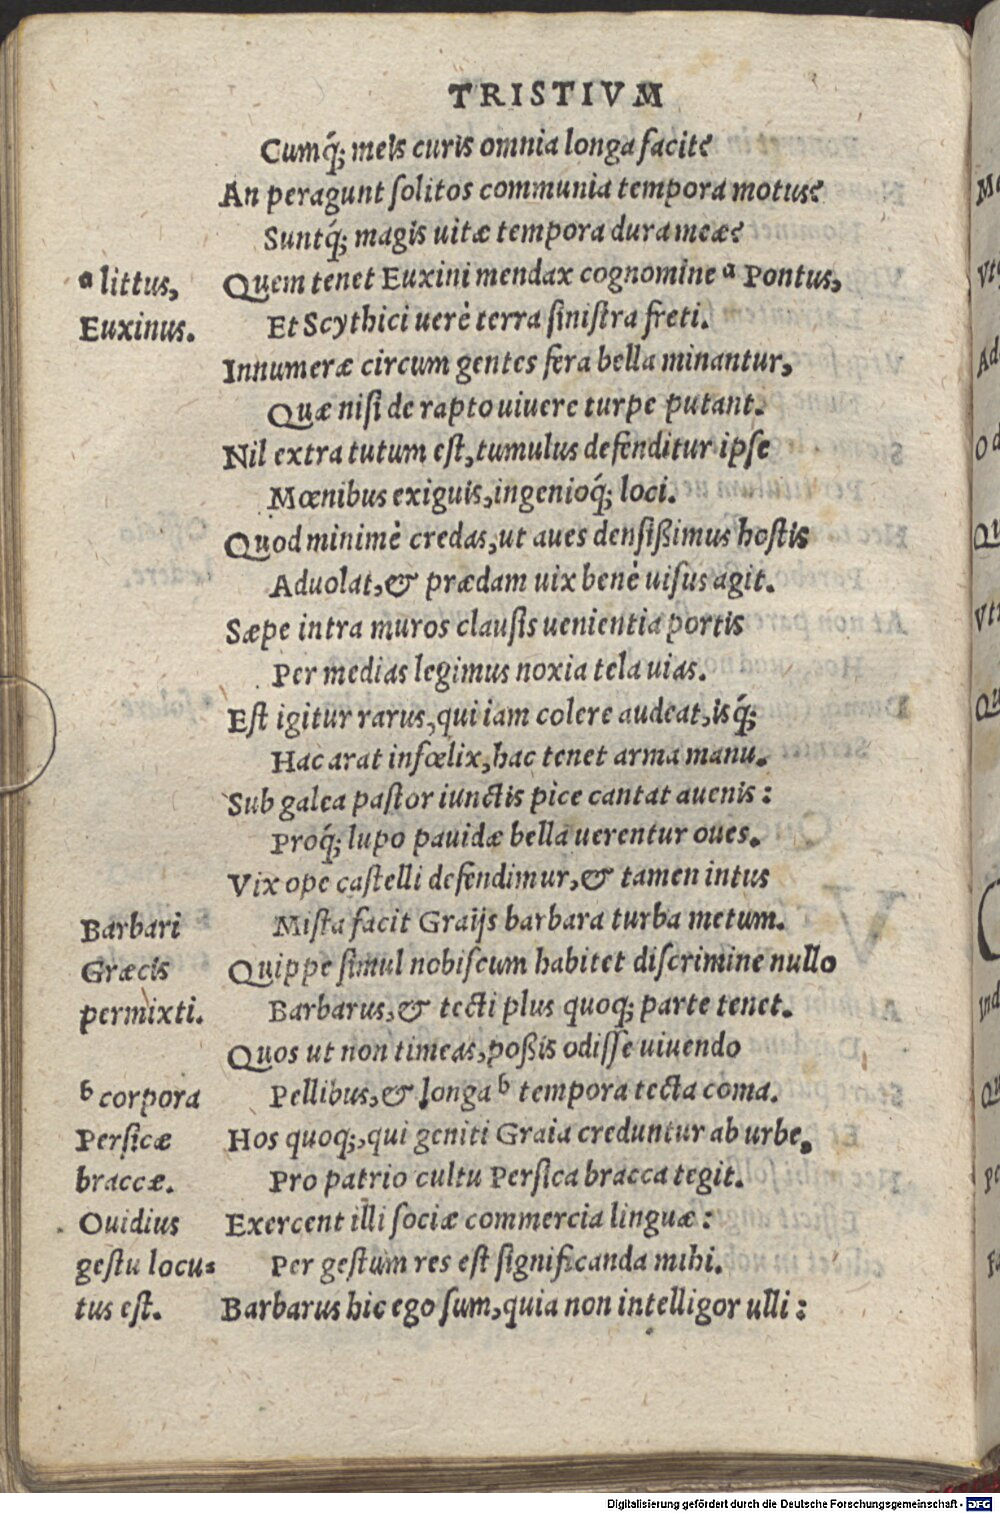 TRISTIVM
Cumq́; meis curis omnia longa facit?
An peragunt ſolitos communia tempora motus?
Suntq́; magis uitæ tempora dura meæ?
ᵃ littus, Quem tenet Euxini mendax cognomine ᵃ Pontus,
Euxinus. Et Scythici uerè terra ſiniſtra freti.
Innumeræ circum gentes fera bella minantur,
Quæ niſi de rapto uiuere turpe putant.
Nil extra tutum eſt, tumulus defenditur ipſe
Mœnibus exiguis, ingenioq́; loci.
Quod minimè credas, ut aues denſißimus hoſtis
Aduolat, & prædam uix benè uiſus agit.
Sæpe intra muros clauſis uenientia portis
Per medias legimus noxia tela uias.
Eſt igitur rarus, qui iam colere audeat, isq́;
Hac arat infœlix, hac tenet arma manu.
Sub galea paſtor iunctis pice cantat auenis:
Proq́; lupo pauidæ bella uerentur oues.
Vix ope caſtelli defendimur, & tamen intus
Barbari Miſta facit Graijs barbara turba metum.
Græcis Quippe ſimul nobiſcum habitet diſcrimine nullo
permixti. Barbarus, & tecti plus quoq; parte tenet.
Quos ut non timeas, poßis odiſſe uiuendo
ᵇ corpora Pellibus, & longa ᵇ tempora tecta coma.
Perſicæ Hos quoq;, qui geniti Graia creduntur ab urbe,
braccæ. Pro patrio cultu Perſica bracca tegit.
Ouidius Exercent illi ſociæ commercia linguæ:
geſtu locu= Per geſtum res eſt ſignificanda mihi.
tus eſt. Barbarus hic ego ſum, quia non intelligor ulli:
Digitalisierung gefördert durch die Deutsche Forschungsgemeinschaft - DFG